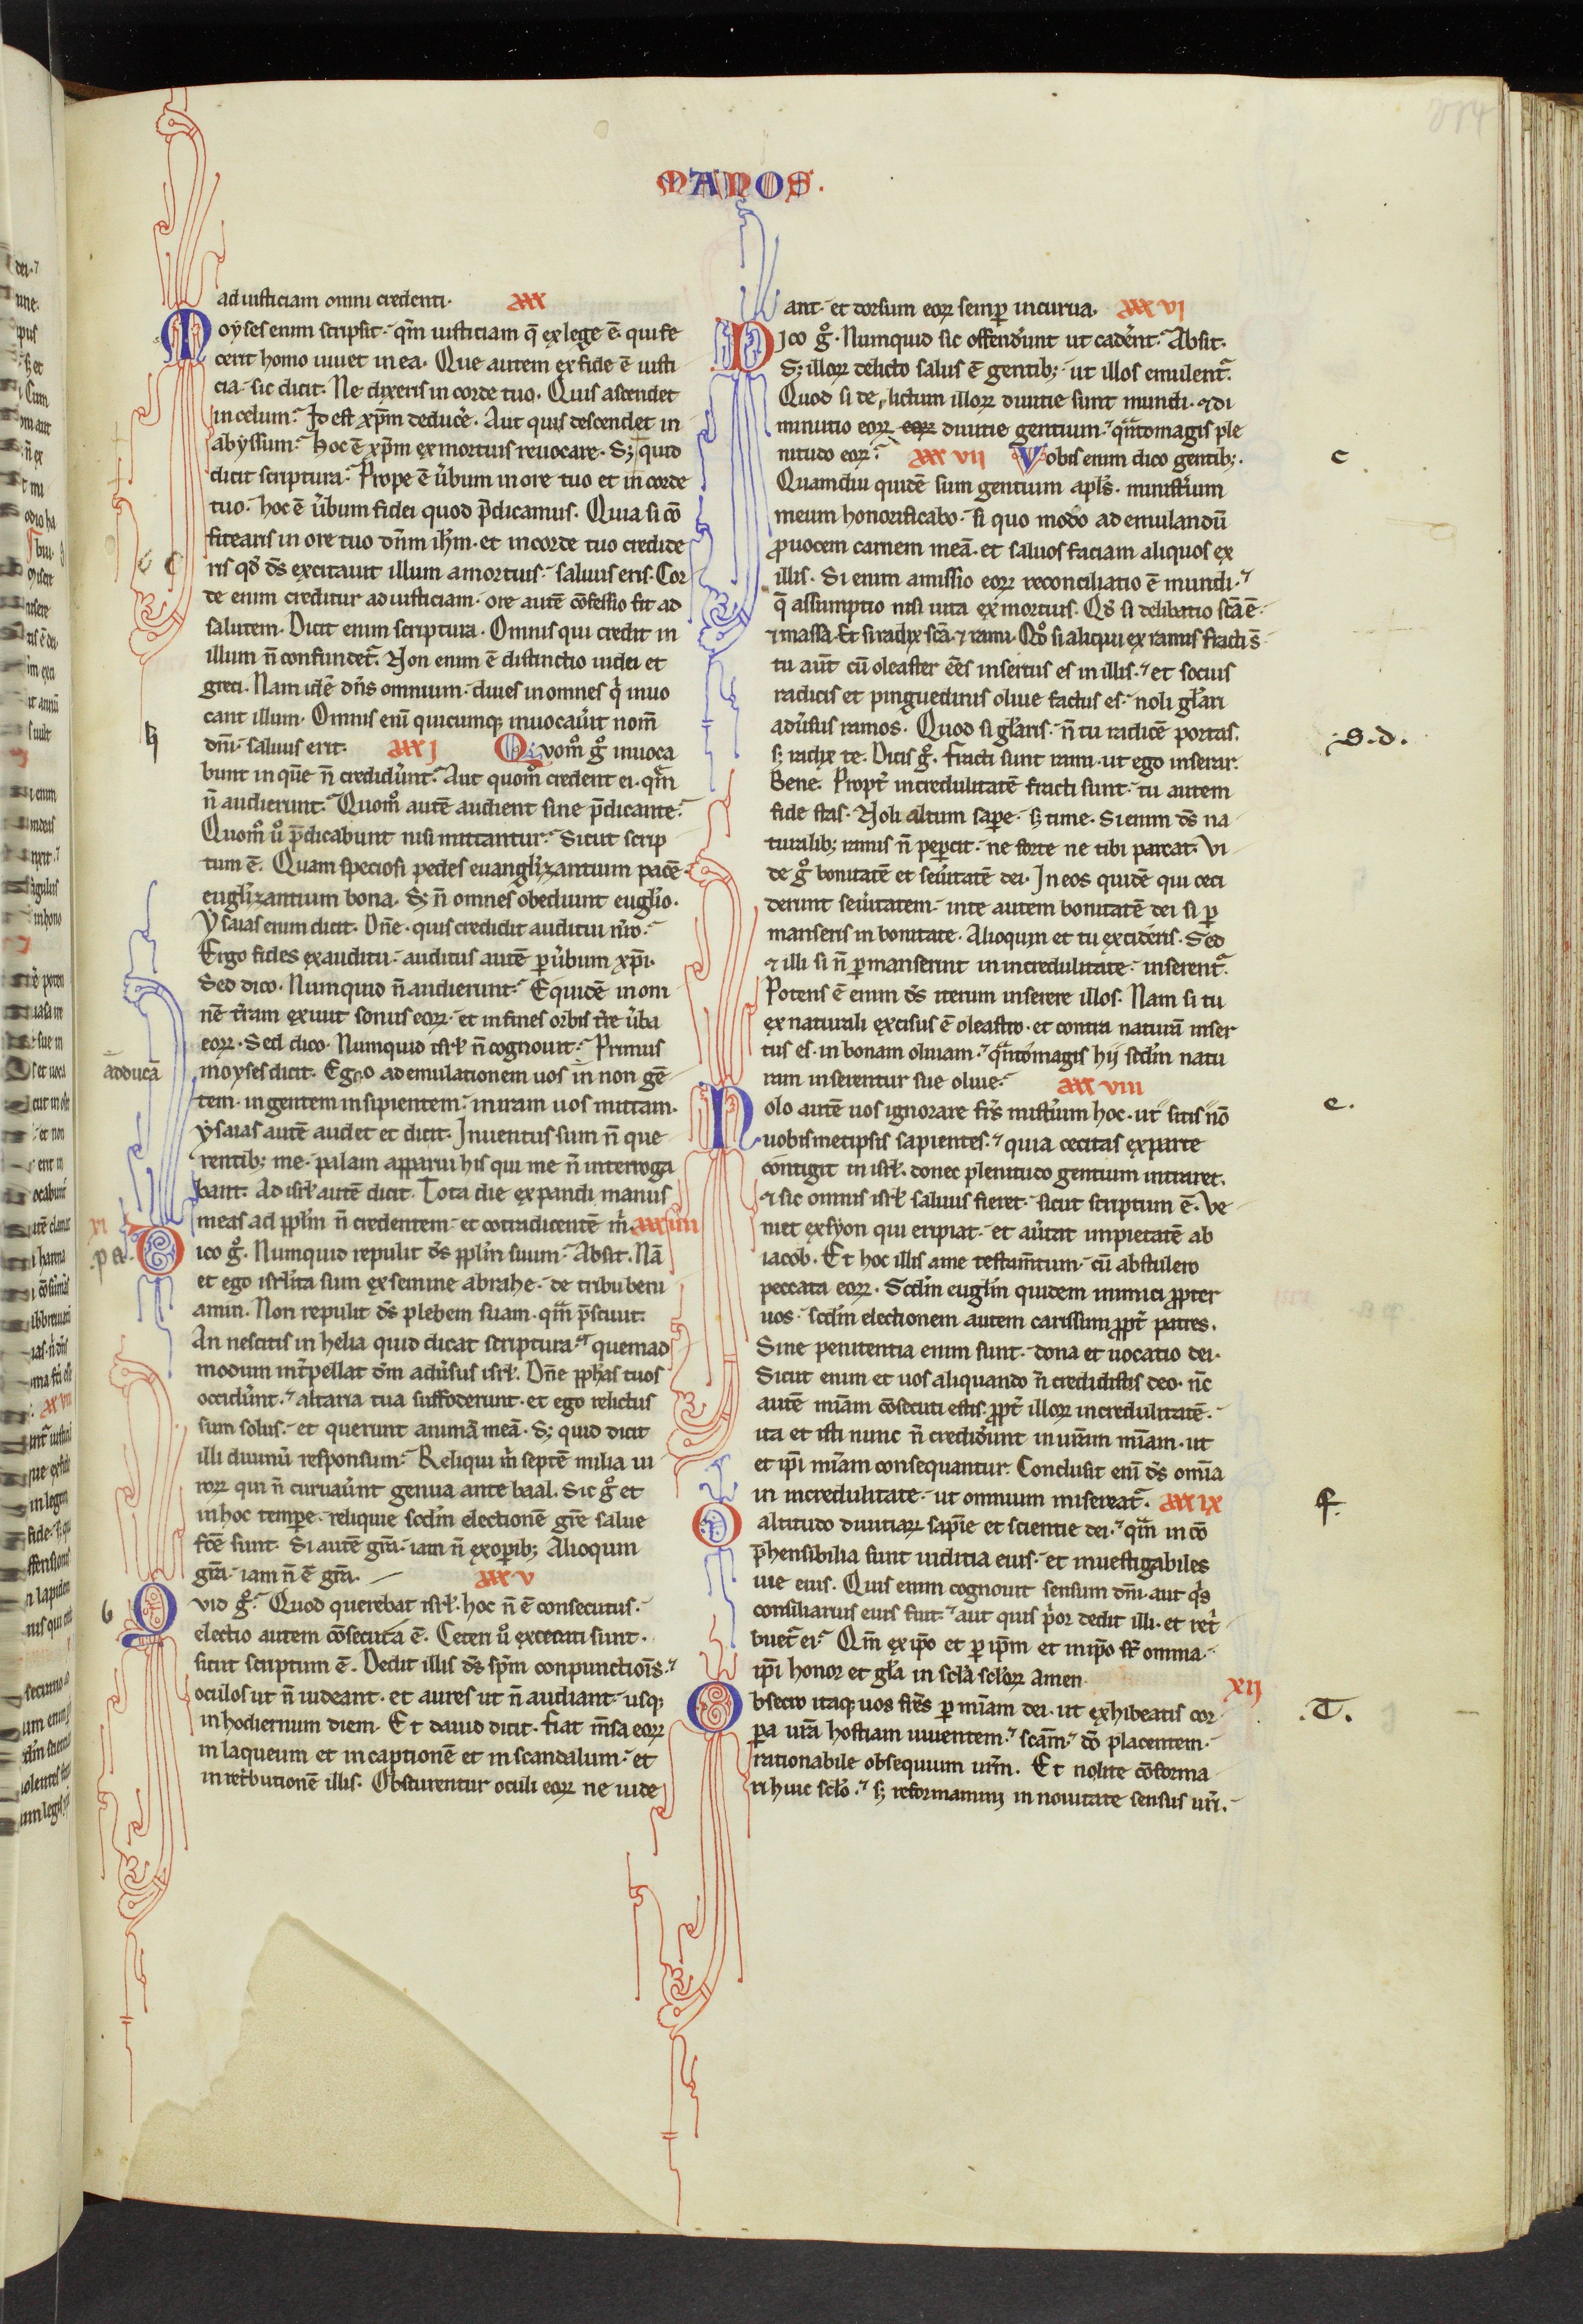 MANOS.
ad iusticiam omni credenti. XXX
Moyses enim scripsit. qm̄ iusticiam q̄ ex lege ē. qui fe
cerit homo uiuet in ea. Que autem ex fide ē iusti
cia. sic dicit. Ne dixeris in corde tuo. Quis ascendet
in celum. Id est xp̄m deducere. Aut quis descendet in
abyssum. hoc ē xp̄m ex mortuis reuocare. S; quid
dicit scriptura. Prope ē uerbum in ore tuo et in corde
tuo. hoc ē uerbum fidei quod p̄dicamus. Quia si cō
fitearis in ore tuo dn̄m ih̄m. et in corde tuo credide
ris qd̄ ds̄ excitauit illum a mortuis. saluus eris. Cor
de enim creditur ad iusticiam. ore autē cōfessio fit ad
salutem. Dicit enim scriptura. Omnis qui credit in
illum n̄ confundet᷑. Non enim ē distinctio iudei et
greci. Nam idē dn̄s omnium. diues in omnes qi inuo
cant illum. Omnis eni quicumq; inuocau̓it nom̄
dn̄i. saluus erit. XXXI Quom̊ g̊ inuoca
bunt in quē n̄ credidu̓nt. Aut quom̊ credent ei. qm̄
n̄ audierunt. Quom̊ autē audient sine p̄dicante.
Quom̊ ů p̄dicabunt nisi mittantur. Sicut scrip
tum ē. Quam speciosi pedes euanglizantium pacē
euglizantium bona. S; n̄ omnes obediunt euglio.
Ysaias enim dicit. Dn̄e. quis credidit auditui nr̄o.
Ergo fides ex auditu. auditus autē p uerbum xp̄i.
Sed dico. Numquid n̄ audierunt. Equidē in om
nē terram exiuit sonus eoꝝ. et in fines orbis terre uerba
eoꝝ. Sed dico. Numquid isrl̄ n̄ cognouit. Primus
adducā
moyses dicit. Ego ad emulationem uos in non gē
tem. in gentem insipientem. in iram uos mittam.
ysaias autē audet et dicit. Inuentus sum n̄ que
rentib; me. palam apparui his qui me n̄ interroga
bant. Ad isrl̄ autē dicit. Tota die expandi manus
meas ad pplm̄ n̄ credentem. et cotradicentē m̓. XXXIIII
XI
p a.
Dico g̊. Numquid repulit ds̄ pplm̄ suum. Absit. Nā
et ego isrl̄ita sum ex semine abrahe. de tribu beni
amin. Non repulit ds̄ plebem suam. qm̄ p̄sciuit.
An nescitis in helia quid dicat scriptura. quemad
modum int̓pellat dm̄ adu̓sus isrl̄. Dn̄e pphas tuos
occidu̓nt. altaria tua suffoderunt. et ego relictus
sum solus. et querunt animā meā. S; quid dicit
illi diuinū responsum. Reliqui m̓ septē milia ui
roꝝ qui n̄ curuau̓nt genua ante baal. Sic g̊ et
in hoc tempe. reliquie scdm̄ electionē grē salue
fcē sunt. Si autē grā. iam n̄ ex opib; Alioquin
grā. iam n̄ ē grā. XXXV
6
Quid g̊. Quod querebat isrl̄. hoc n̄ ē consecutus.
electio autem cōsecuta ē. Ceteri ů excecati sunt.
sicut scriptum ē. Dedit illis ds̄ spm̄ conpunctiois̄.
oculos ut n̄ uideant. et aures ut n̄ audiant. usq;
in hodiernum diem. Et dauid dicit. fiat m̄sa eoꝝ
in laqueum et in captionē et in scandalum. et
in ret̓butionē illis. Obscurentur oculi eoꝝ ne uide
ant. et dorsum eoꝝ semp incurua. XXXVI
Dico g̊. Numquid sic offendu̓nt ut cade̓nt. Absit.
S; illoꝝ delicto salus ē gentib;. ut illos emulent᷑.
Quod si delictum illoꝝ diuitie sunt mundi. ⁊ di
minutio eoꝝ eoꝝ diuitie gentium. qn̄to magis ple
nitudo eoꝝ. XXXVII Vobis enim dico gentib;.
c
Quamdiu quidē sum gentium apls̄. minist̓ium
meum honorificabo. si quo modo ad emulandū
prouocem carnem meā. et saluos faciam aliquos ex
illis. Si enim amissio eoꝝ reconciliatio ē mundi.
q̄ assumptio nisi uita ex mortuis. Qd̓ si delibatio scā ē.
⁊ massa. Et si radix scā. ⁊ rami. Qd̓ si aliqui ex ramis fracti s̄
tu aut̄ cū oleaster ēēs insertus es in illis. et socius
radicis et pinguedinis oliue factus es. noli glari
adu̓sus ramos. Quod si glaris. n̄ tu radicē portas.
s; radix te. Dicis g̊. fracti sunt rami. ut ego inserar.
.s.d.
Bene. Propt̓ incredulitatē fracti sunt. tu autem
fide stas. Noli altum sape. s; time. Si enim ds̄ na
turalib; ramis n̄ pepcit. ne forte ne tibi parcat. Vi
de g̊ bonitatē et seu̓itatē dei. In eos quidē qui ceci
derunt seu̓itatem. in te autem bonitatē dei si p
manseris in bonitate. Alioquin et tu excideris. Sed
⁊ illi si n̄ pmanserint in incredulitate. inserent᷑.
Potens ē enim ds̄ iterum inserere illos. Nam si tu
ex naturali excisus ē oleastro. et contra naturā inser
tus es. in bonam oliuam. qn̄to magis hij scdm̄ natu
ram inserentur sue oliue. XXXVIII
Nolo autē uos ignorare frs̄ mist̓ium hoc. ut sitis nō
e.
uobismetipsis sapientes. quia cecitas ex parte
contigit in isrl̄. donec plenitudo gentium intraret.
⁊ sic omnis isrl̄ saluus fieret. sicut scriptum ē. Ve
niet ex syon qui eripiat. et au̓tat impietatē ab
iacob. Et hoc illis a me testam̄tum. cū abstulero
peccata eoꝝ. Scdm̄ euglm̄ quidem inimici propter
uos. scdm̄ electionem autem carissimi ppt̓ patres.
Sine penitentia enim sunt. dona et uocatio dei.
Sicut enim et uos aliquando n̄ credidistis deo. nc̄
autē miam̄ cōsecuti estis. ppt̓ illoꝝ incredulitatē.
ita et isti nunc n̄ credidu̓nt in uram̄ miam̄. ut
et ipi miam̄ consequantur. Conclusit eni ds̄ omia
in incredulitate. ut omnium misereat᷑. XXXIX
f.
O altitudo diuitiaꝝ sapie et scientie dei. qm̄ in cō
p̄hensibilia sunt iudicia eius. et inuestigabiles
uie eius. Quis enim cognouit sensum dn̄i. aut qi̓s
consiliarius eius fuit. aut quis p̓or dedit illi. et ret̓
buet᷑ ei. Qm̄ ex ipo et p ipm̄ et in ipo st̄ omnia.
ipi honor et gla in scla scloꝝ amen.
XII
Obsecro itaq; uos frs̄ p miam̄ dei. ut exhibeatis cor
.T.
pa ura hostiam uiuentem. scam̄. do̅ placentem.
rationabile obsequium urm̄. Et nolite cōforma
ri huic sclo. s; reformamini in nouitate sensus uri.